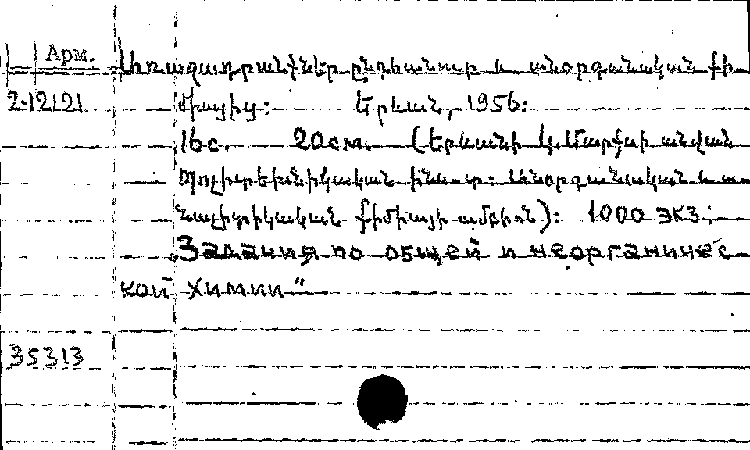 Арм.
Առաջադրանքներ ընդհանուր և անօրգանական քի
2-12121 միայից: Երևան, 1956:
16с. 20см. (Երևանի Կ. Մարքսի անվան
Պոլիտեխնիկական ինստ.: Անօրգանական և ա
նալիտիկական քիմիայի ամբիոն): 1000 экз.:
„Задания по общей и неорганичес
кой химии"
35313